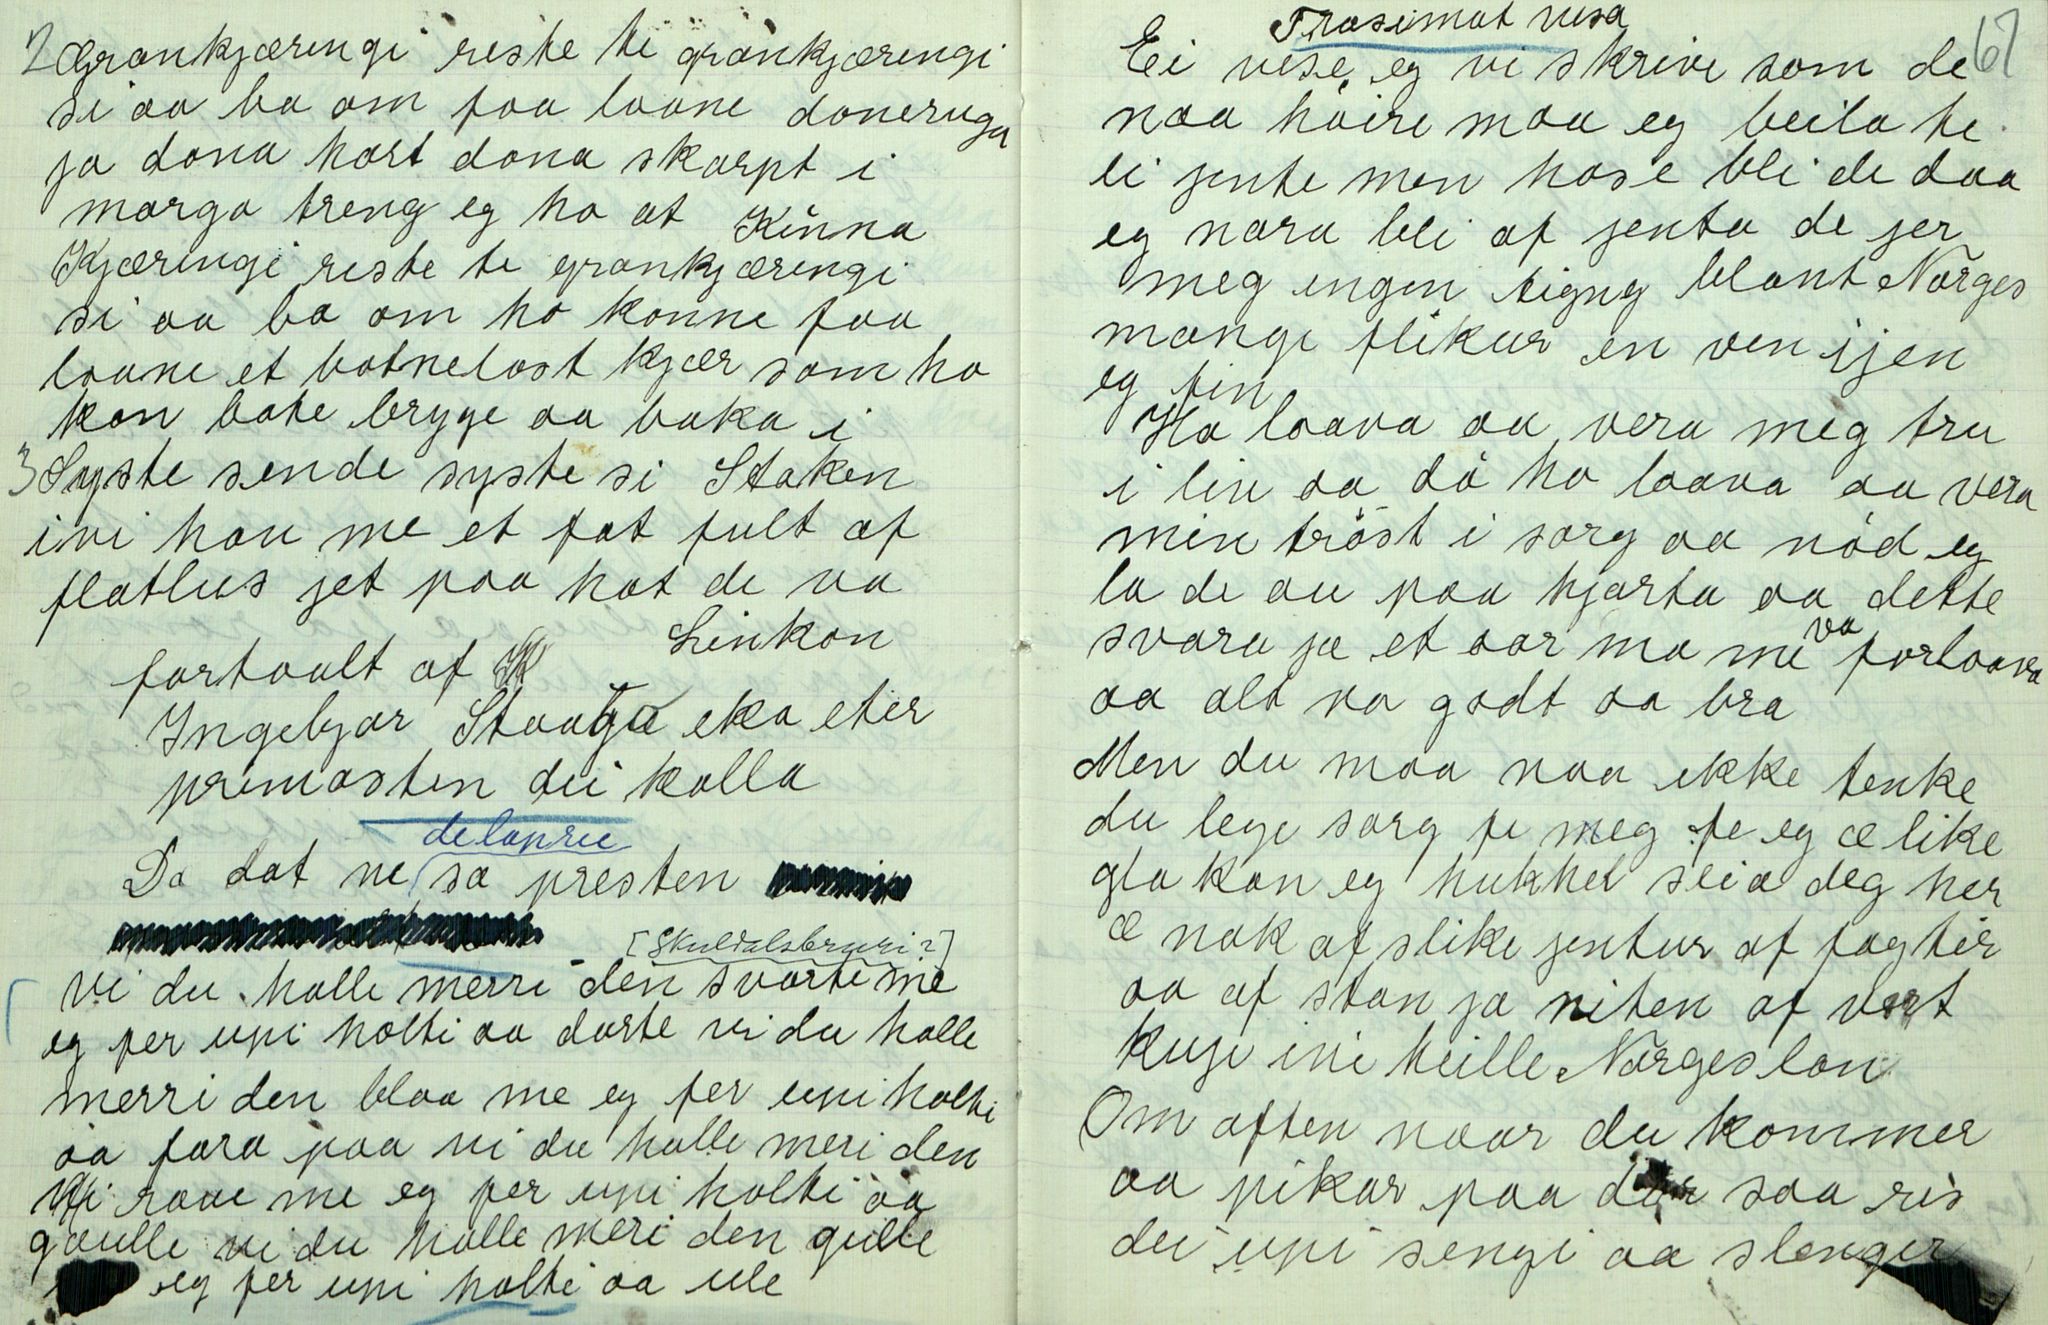 2 Grankjæringi reste te grankjæringi
si aa ba om faa laane doneruga
ja dona hart dona skarpt i
margo treng eg ho at Kinna
Kjæringi reste te grankjæringi
si aa ba om ho konne faa
laane et botnelast kjær som ho
kan bate bryge aa baka i
3 Syste sende syste si Staken
ivi han me et fat fult af
flatlus jet paa hat de va
Linkan
fortoalt af
Ingebjar Staaga eka eter
primasten dei kalla
delaprei
Da dat ne sa presten
[Skuldalsbruri?]
Vi du halle merri den svarte me
eg fer upi holti aa darte vi du halle
merri den blaa me eg fer upi holti
aa fara paa vi du halle meri den
raae me eg fer upi holti aa
gaulle vi du halle meri den gulle
eg fer upi holti aa ule
67
Trasimat visa
Ei vise eg vi skrive som de
naa höire maa eg beila te
ei jente men hase bli de daa
eg nara bli af jenta de jer
meg ingen tigng blant Narges
mange flikur en ven ijen
eg fin
Ho laava aa vera meg tru
i liv aa dö ho laava aa vera
min tröst i sarg aa nöd eg
la de au paa hjarta aa dette
svara ja et aar ma me va forlaava
aa alt va godt aa bra
Men du maa naa ikke tenke
du lege sarg fe meg fe eg æ like
gla kan eg hukhel seia deg her
æ nok af slike jentur af fagtir
aa af stan ja niten af vart
kuje ini heille Narges lan
Om aften naar du kommer
aa pikar paa dör saa ris
dei upi sengi aa slenger